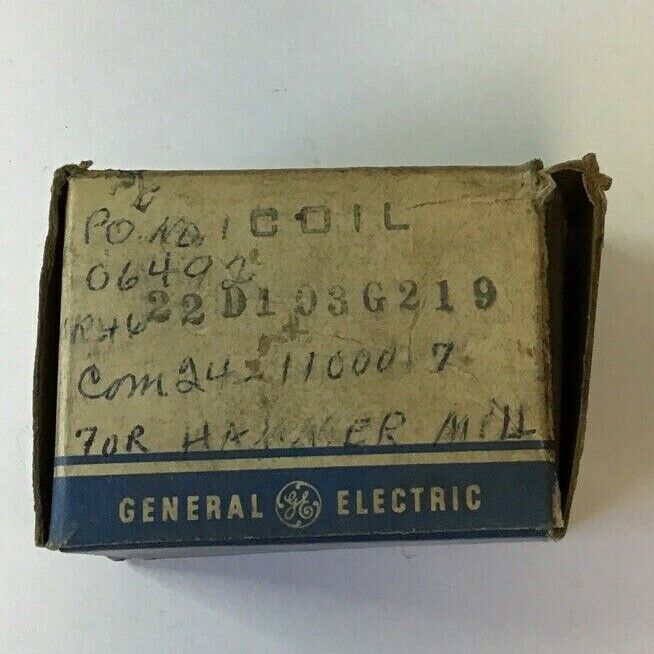 PO NO. 1 COIL
06492
22D103G219
R46
Com 24-11000 7
FOR HAMMER MILL
GENERAL GE ELECTRIC